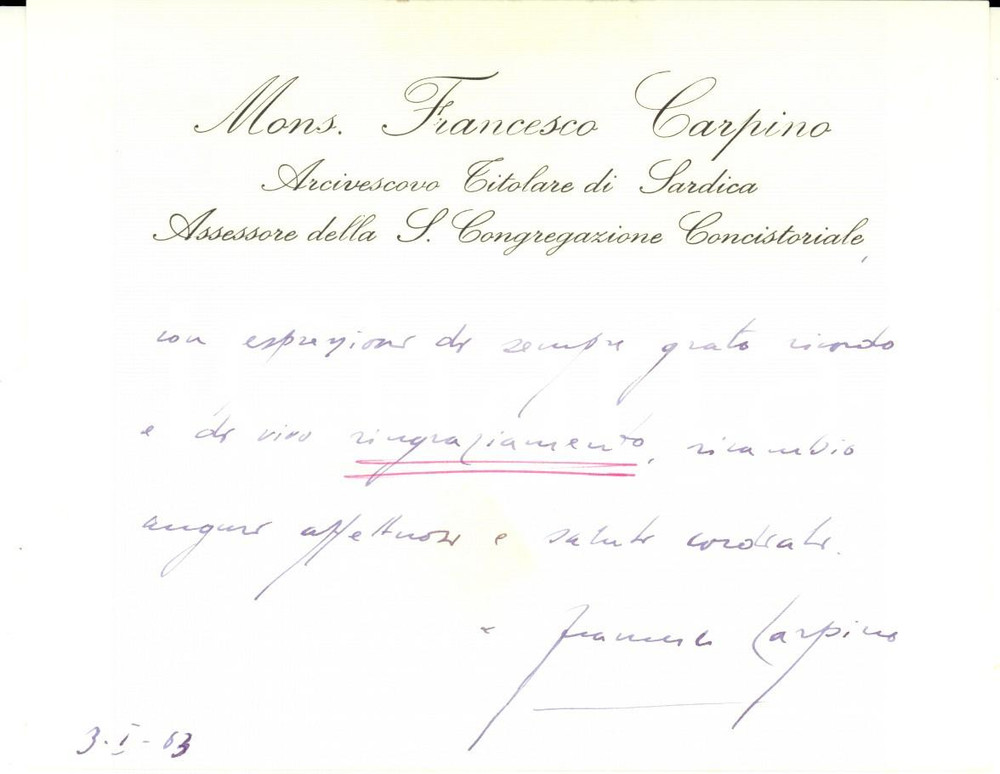 Mons. Francesco Carpino
Arcivescovo Titolare di Sardica
Assessore della S. Congregazione Concistoriale,
con espressione di sempre grato ricordo
e di vivo ringraziamento, ricambio
auguri affettuosi e saluti cordiali.
+ Francesco Carpino
3·I-63